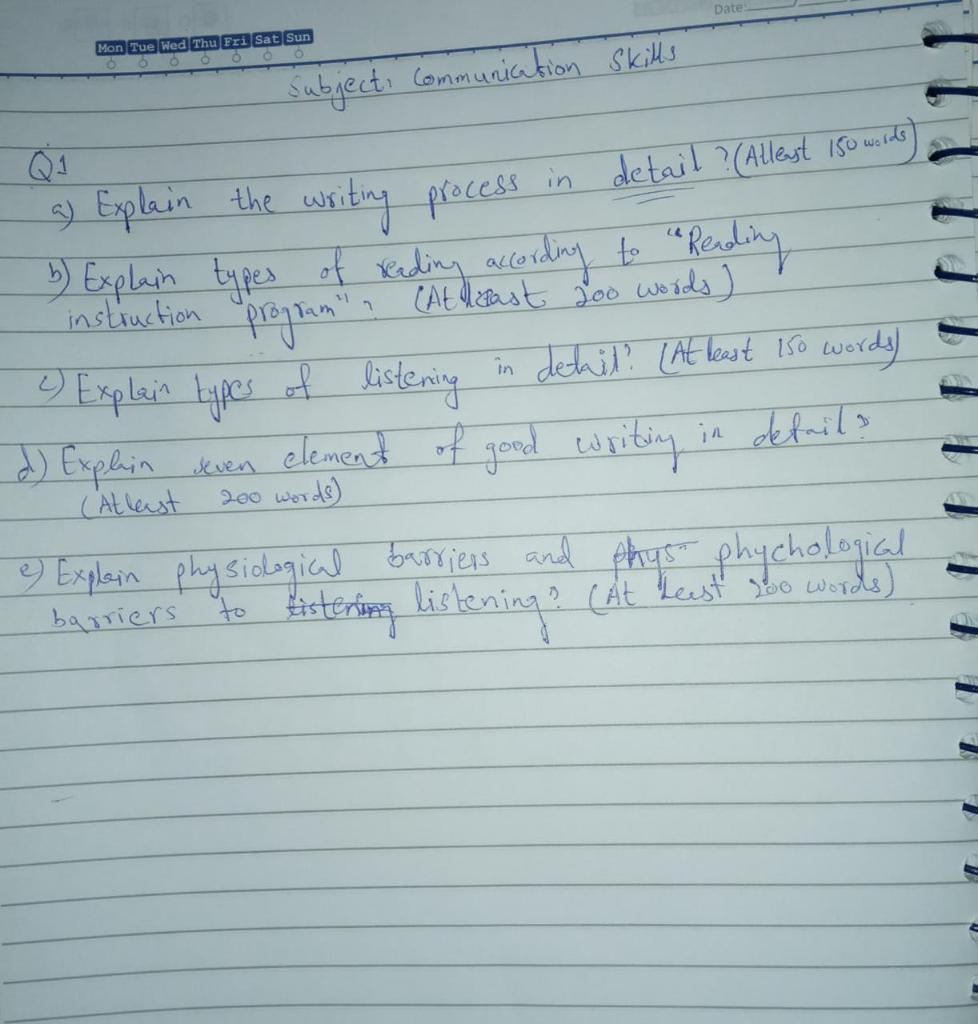 Date:
Mon Tue Wed Thu Fri Sat Sun
Subject: Communication Skills
Q1
a) Explain the writing process in detail ? (Atleast 150 words)
b) Explain types of reading according to "Reading
instruction program" ? (At least 200 words)
c) Explain types of listening in detail? (At least 150 words)
d) Explain seven element of good writing in detail?
(Atleast 200 words)
e) Explain physiological barriers and phys phychological
barriers to listening listening? (At least 200 words)